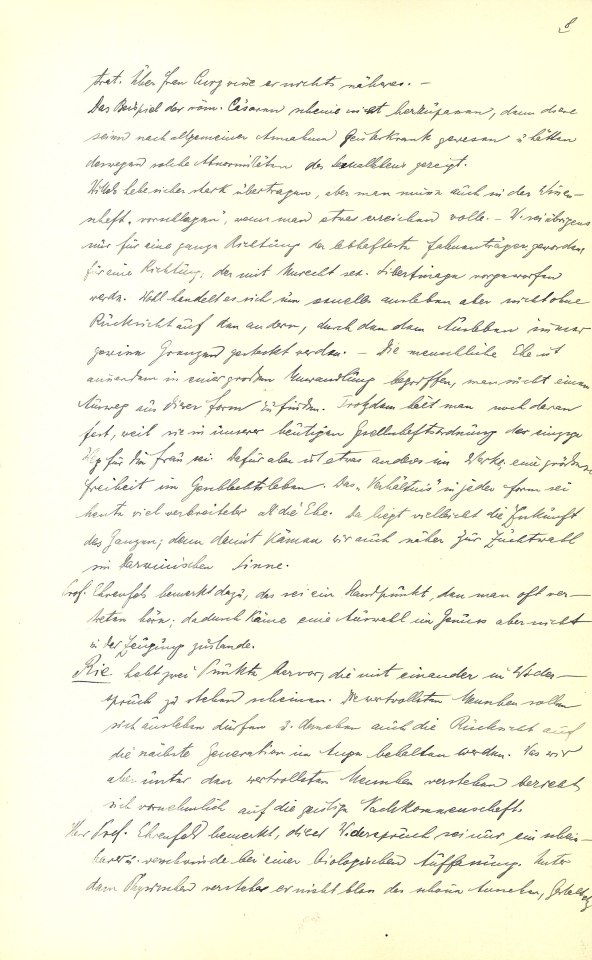 8
trat. Über Frau Curg wisse er nichts näheres. —
Das Beispiel der röm. Cäsaren scheine nicht herzupassen, denn diese
seien nach allgemeiner Annahme Geisteskrank gewesen u hätten
deswegen solche Abnormitäten des Sexuallebens gezeigt.
Wittels habe sicher stark übertragen, aber man müsse auch in der Wissen-
schaft „vorschlagen", wenn man etwas erreichen wolle. — W. sei übrigens
nur für eine ganze Richtung der lebhafteste Fahnenträger geworden,
für eine Richtung, der mit Unrecht sex. Libertinage vorgeworfen
werde. Wohl handelt es sich um sexuelles ausleben aber nicht ohne
Rücksicht auf den andern, durch den dem Ausleben immer
gewisse Grenzen gesteckt werden. — Die menschliche Ehe ist
ausserdem in einer großen Umwandlung begriffen, man sucht einen
Ausweg aus dieser Form zu finden. Trotzdem hält man noch daran
fest, weil sie in unserer heutigen Gesellschaftsordnung der einzige
Weg für die Frau sei. Dafür aber ist etwas anderes im Werke, eine größere
Freiheit im Geschlechtsleben. Das „Verhältnis" in jeder Form sei
heute viel verbreiteter als die Ehe. Da liegt vielleicht die Zukunft
des Ganzen; denn damit kämen wir auch näher zur Zuchtwahl
im Darwinischen Sinne.
Prof. Ehrenfels bemerkt dazu, das sei ein Standpunkt, den man oft ver-
treten höre; dadurch käme eine Auswahl im Genuss aber nicht
in der Zeugung zustande.
Rie hebt zwei Punkte hervor, die mit einander in Wider-
spruch zu stehen scheinen. Die wertvollsten Menschen sollen
sich ausleben dürfen u. daneben auch die Rücksicht auf
die nächste Generation im Auge behalten werden. Was wir
aber unter den wertvollsten Menschen verstehen bezieht
sich vornehmlich auf die geistige Nachkommenschaft.
Herr Prof. Ehrenfels bemerkt, dieser Widerspruch sei nur ein schein-
barer u. verschwinde bei einer biologischen Auffassung. Unter
dem Physischen verstehe er nicht blos das schöne Aussehen,